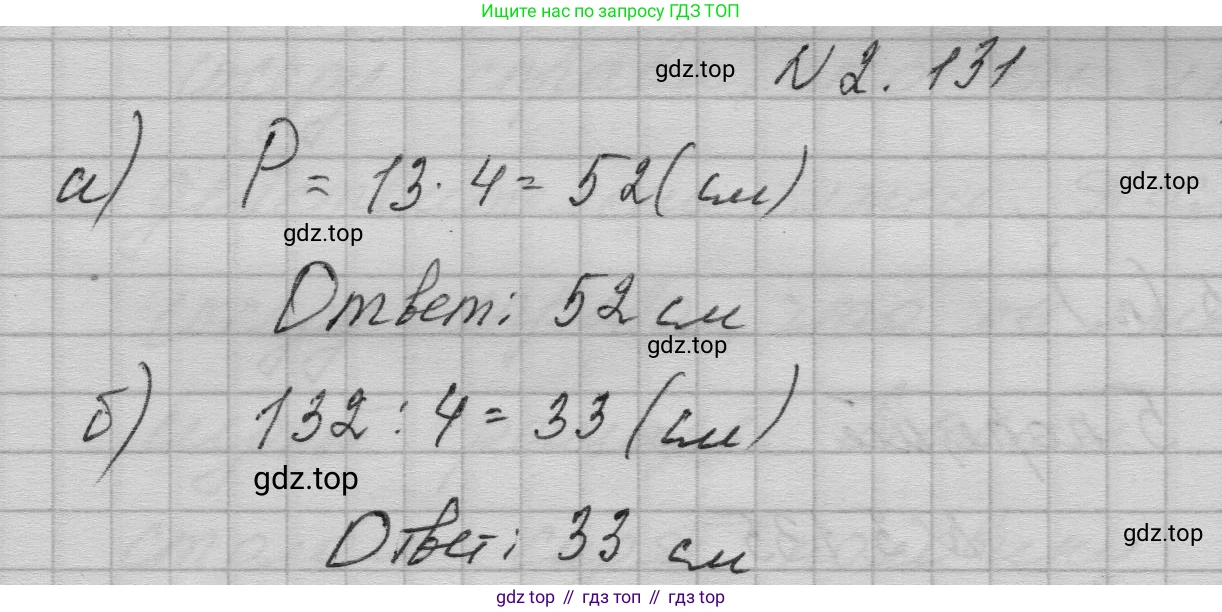 Ищите нас по запросу ГДЗ ТОП
gdz.top
N 2. 131
а) P = 13 · 4 = 52 (см)
gdz.top
gdz.top
Ответ: 52 см
gdz.top
б) 132 : 4 = 33 (см)
gdz.top
Ответ: 33 см
gdz.top
gdz top // гдз топ // gdz top